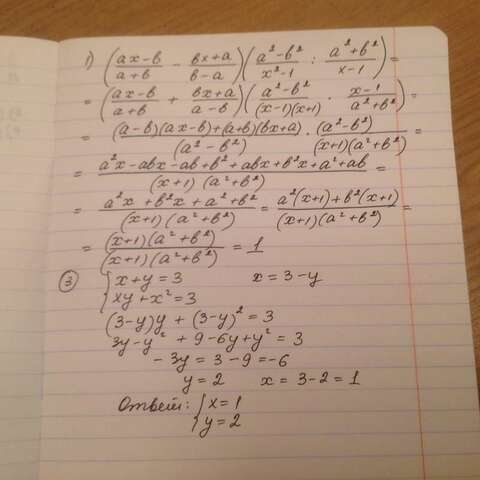 1) ((ax-b)/(a+b) - (bx+a)/(b-a)) ((a²-b²)/(x²-1) : (a²+b²)/(x-1)) =
= ((ax-b)/(a+b) + (bx+a)/(a-b)) ((a²-b²)/((x-1)(x+1)) · (x-1)/(a²+b²)) =
= ((a-b)(ax-b)+(a+b)(bx+a))/(a²-b²) · (a²-b²)/((x+1)(a²+b²)) =
= (a²x-abx-ab+b²+abx+b²x+a²+ab)/((x+1)(a²+b²)) =
= (a²x+b²x+a²+b²)/((x+1)(a²+b²)) = (a²(x+1)+b²(x+1))/((x+1)(a²+b²)) =
= ((x+1)(a²+b²))/((x+1)(a²+b²)) = 1
③ { x+y=3 x=3-y
xy+x²=3
(3-y)y + (3-y)² = 3
3y-y² + 9-6y+y² = 3
-3y = 3-9 = -6
y=2 x = 3-2 = 1
Ответ: { x=1
y=2